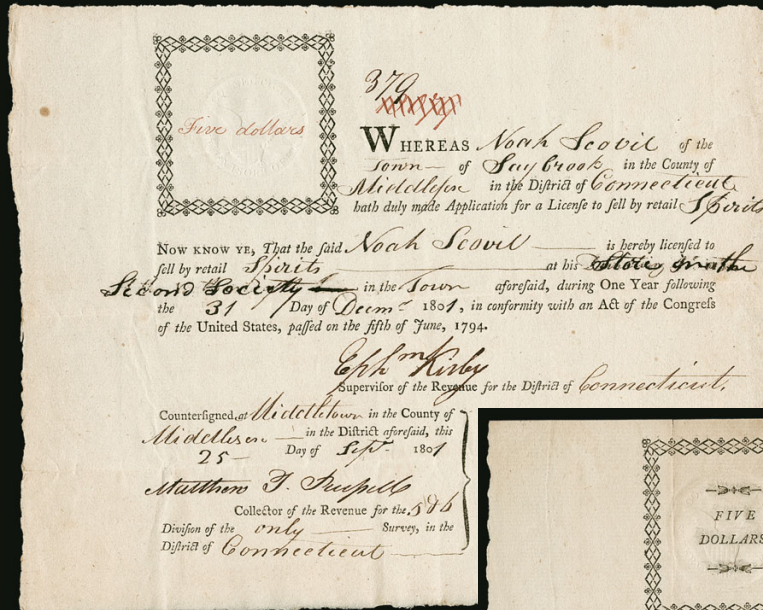 Five dollars
379
WHEREAS Noah Scovil of the
Town of Saybrook in the County of
Middlesex in the District of Connecticut
hath duly made Application for a License to sell by retail Spirits
NOW KNOW YE, That the said Noah Scovil is hereby licensed to
sell by retail Spirits at his Store in the
Second Society in the Town aforesaid, during One Year following
the 31 Day of Decmr 1801, in conformity with an Act of the Congress
of the United States, passed on the fifth of June, 1794.
Ephm Kirby
Supervisor of the Revenue for the District of Connecticut.
Countersigned, at Middletown in the County of
Middlesex in the District aforesaid, this
25 Day of Sept. 1801
Matthew T. Russell
Collector of the Revenue for the
Division of the only Survey, in the
District of Connecticut
FIVE
DOLLARS